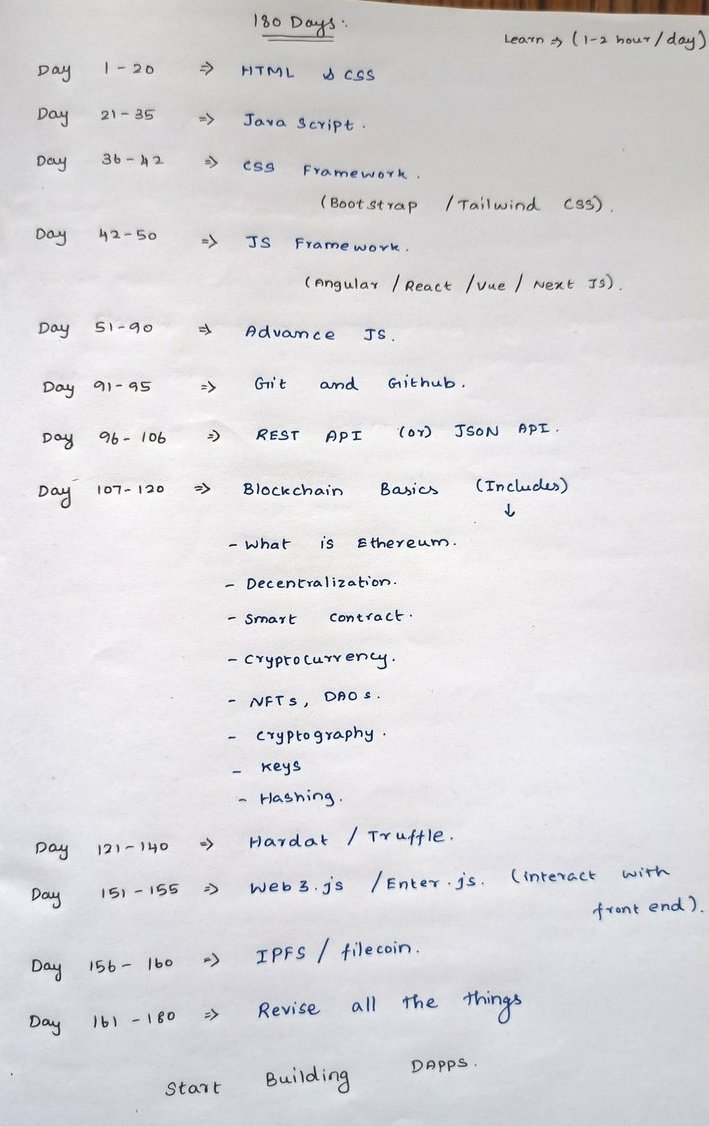 180 Days:
Learn => (1-2 hour/day)
Day 1 - 20 => HTML & CSS
Day 21 - 35 => Java Script.
Day 36 - 42 => CSS Framework.
(Bootstrap / Tailwind CSS).
Day 42 - 50 => JS Framework.
(Angular / React / Vue / Next JS).
Day 51 - 90 => Advance JS.
Day 91 - 95 => Git and Github.
Day 96 - 106 => REST API (or) JSON API.
Day 107 - 120 => Blockchain Basics (Includes)
↓
- What is Ethereum.
- Decentralization.
- Smart contract.
- Cryptocurrency.
- NFTs, DAOs.
- Cryptography.
- Keys
- Hashing.
Day 121 - 140 => Hardat / Truffle.
Day 151 - 155 => Web3.js / Enter.js. (interact with
front end).
Day 156 - 160 => IPFS / filecoin.
Day 161 - 180 => Revise all the things
Start Building DAPPS.